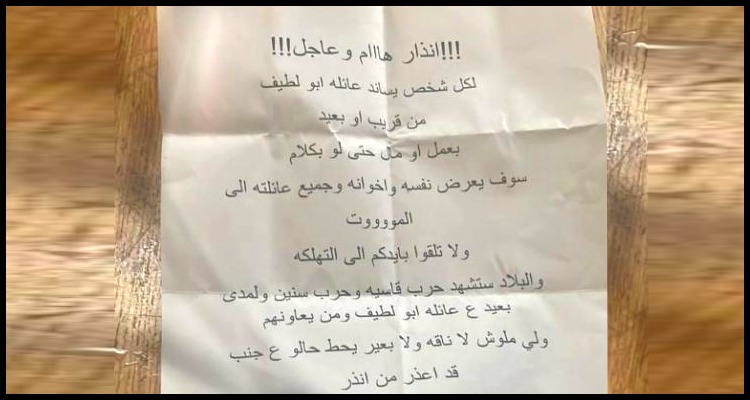 !!!انذار هاااام و عاجل!!!
لكل شخص يساند عائله ابو لطيف
من قريب او بعيد
بعمل او مال حتى لو بكلام
سوف يعرض نفسه واخوانه وجميع عائلته الى
الموووووت
ولا تلقوا بايدكم الى التهلكه
والبلاد ستشهد حرب قاسيه وحرب سنين ولمدى
بعيد ع عائله ابو لطيف ومن يعاونهم
ولي ملوش لا ناقه ولا بعير يحط حالو ع جنب
قد اعذر من انذر